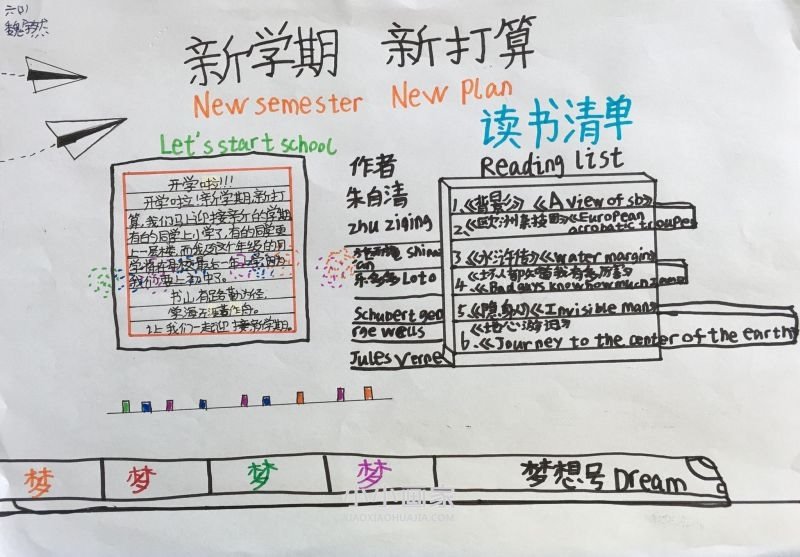 六(1)
新学期 新打算
New semester New Plan
Let's start school
读书清单
Reading list
开学啦!!!
开学啦!新学期,新打
算,我们马上迎接新的学期,
有的同学上小学了,有的同学更
上一层楼,而我们这个年级的同
我们要上初中了。
书山有路勤为径,
学海无涯苦作舟。
让我们一起迎接新学期。
作者
朱自清
zhu ziqing
乐多多 Loto
Schubert geo
rge wells
Jules Verne
1.《背影》《A view of sb》
2.《欧洲杂技团》《European
acrobatic troupe》
3.《水浒传》《water margin》
《坏人都知道我有多厉害》
4.《Bad guys know how much
5.《隐身人》《Invisible man》
《地心游记》
6.《Journey to the center of the earth》
梦 梦 梦 梦 梦想号 Dream
小小画家
XIAOXIAOHUAJIA.COM